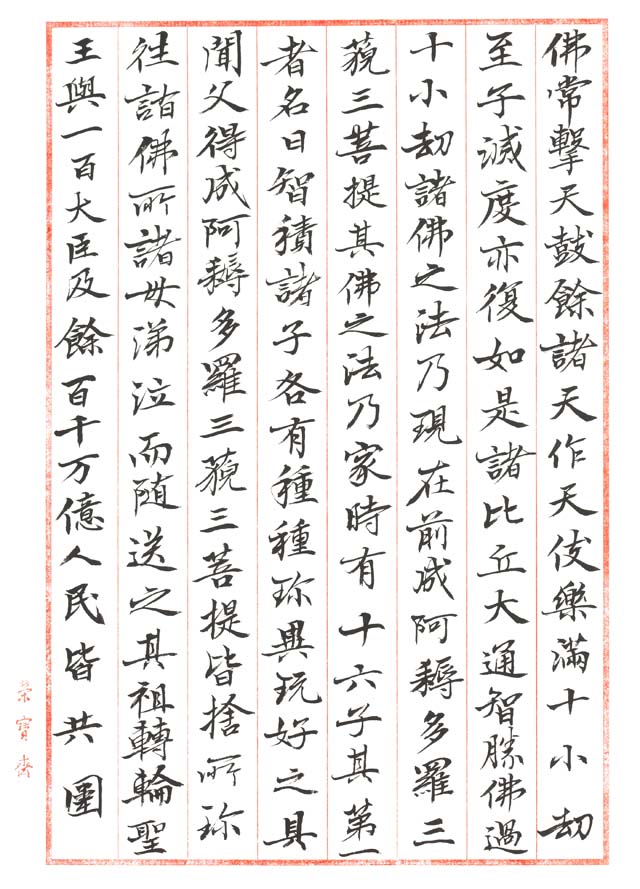 佛常擊天鼓餘諸天作天伎樂滿十小劫
至于滅度亦復如是諸比丘大通智勝佛過
十小劫諸佛之法乃現在前成阿耨多羅三
藐三菩提其佛之法乃家時有十六子其第一
者名曰智積諸子各有種種珍異玩好之具
聞父得成阿耨多羅三藐三菩提皆捨所珍
往詣佛所諸母涕泣而随送之其祖轉輪聖
王與一百大臣及餘百千万億人民皆共圍
榮寶齋